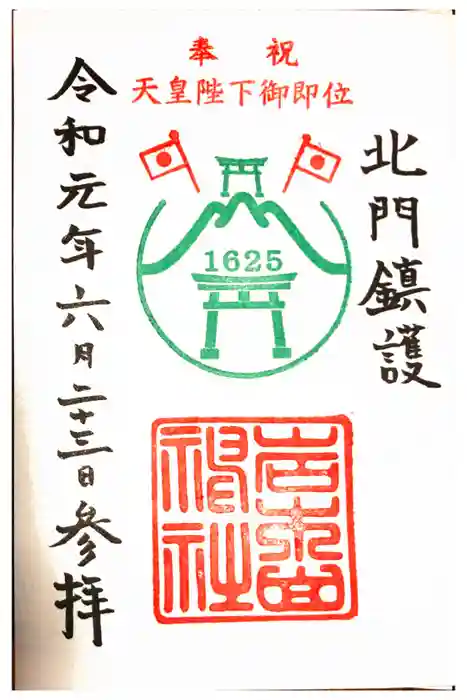 奉祝
天皇陛下御即位
北門鎮護
1625
岩木山
神社
令和元年六月二十三日参拝